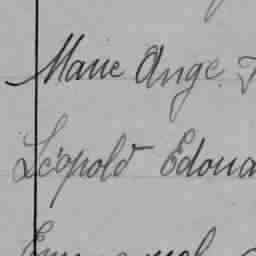 Marie Ange
Léopold Edoua